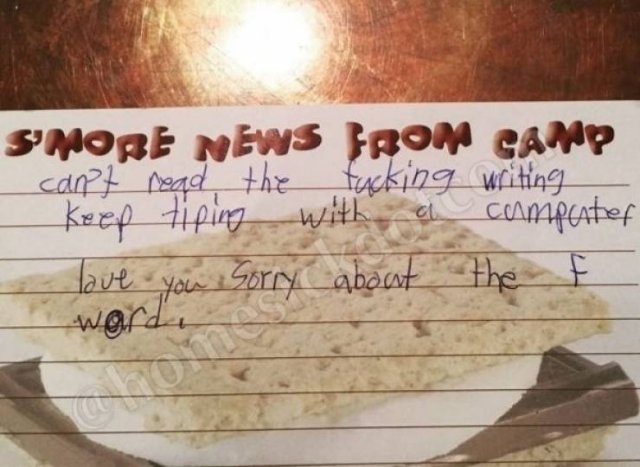 S'MORE NEWS FROM CAMP
can't read the fucking writing
keep tiping with a cumputer
love you sorry about the F
word.